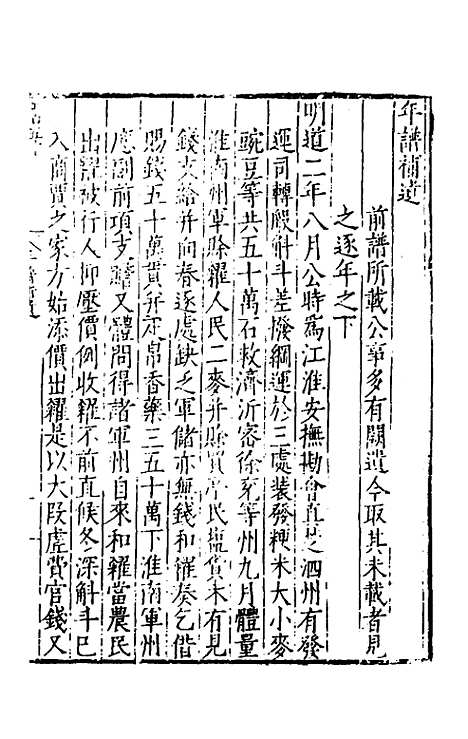 年譜補遺
前譜所載公事多有闕遺今取其未載者見
之逐年之下
明道二年八月公時爲江淮安撫勘會真楚泗州有發
運司轉般斛斗差撥綱運於三處裝發粳米大小麥
豌豆等共五十萬石救濟沂密徐兖等州九月體量
淮南州軍賒糴人民二麥并賒買亭民塩貨未有見
錢支給并向春逐處缺乏軍儲亦無錢和糴奏乞借
賜錢五十萬貫并疋帛香藥三五十萬下淮南軍州
應副前項支贍又體問得諸軍州自來和糴當農民
出糶被行人抑壓價例收糴不前直候冬深斛斗已
入商賈之家方始添價出糴是以大段虛費官錢又